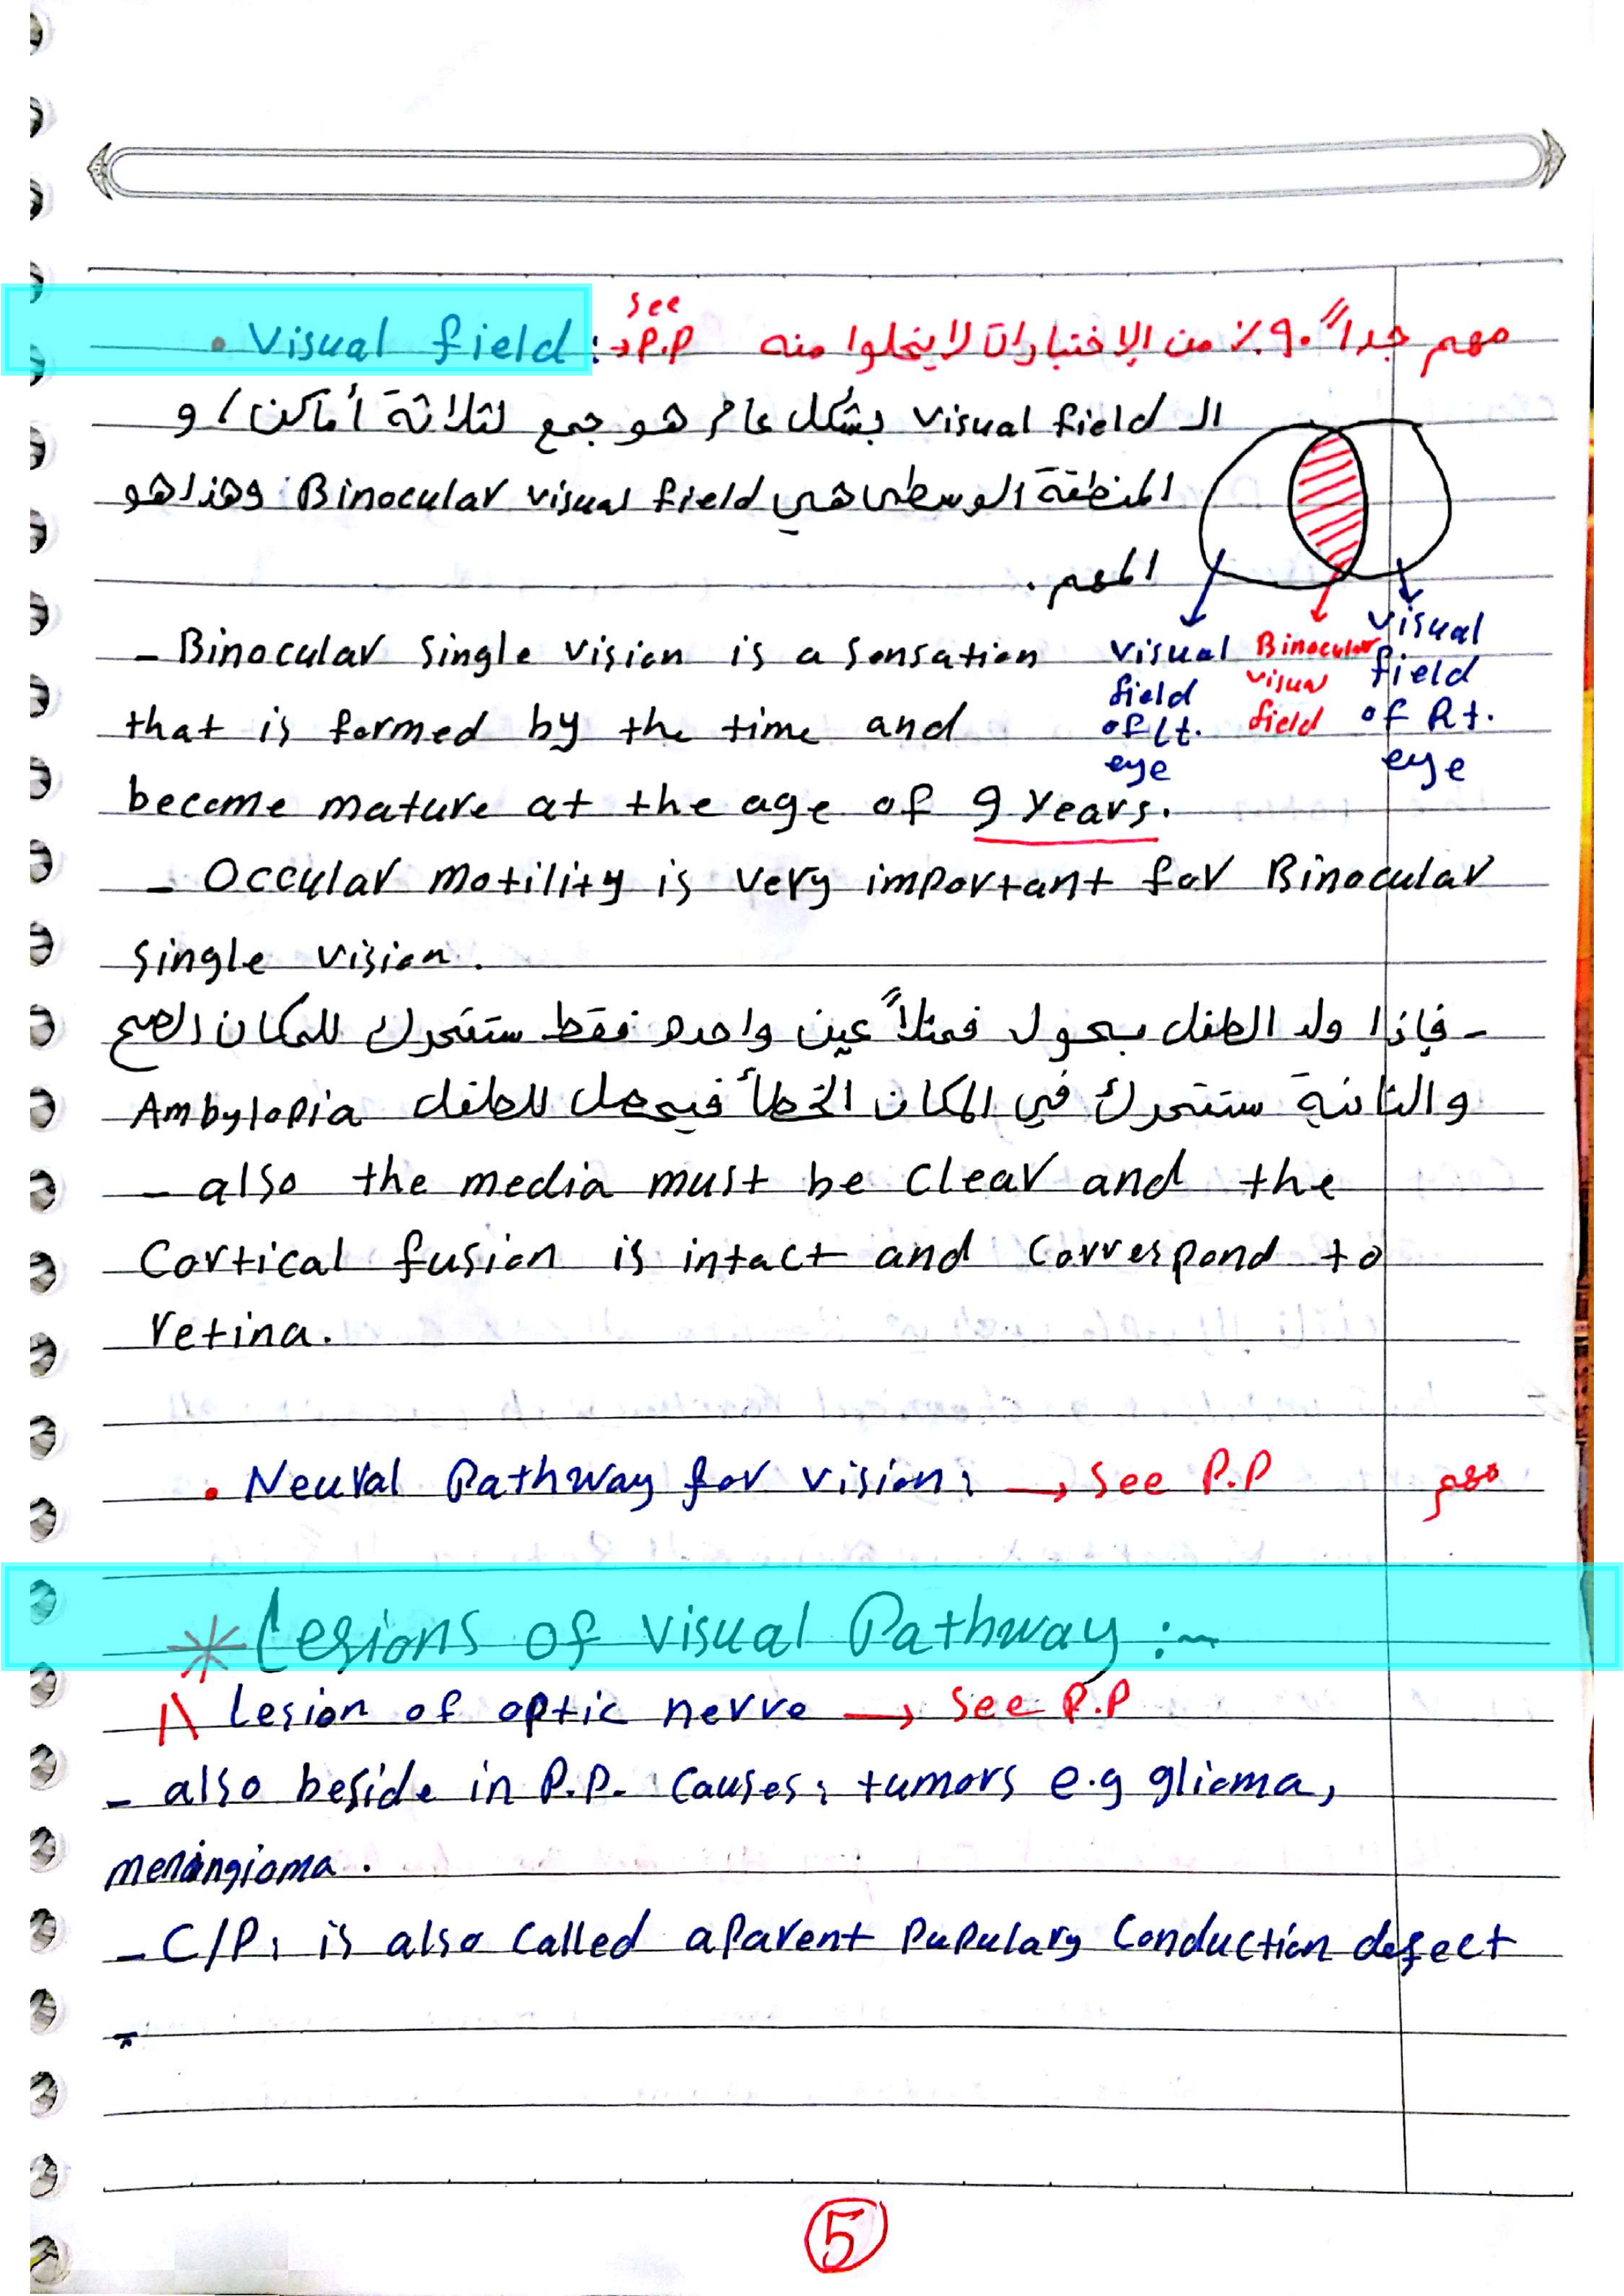 • Visual field: → see P.P مهم جداً ٩٠٪ من الإختبارات لا يخلوا منه
الـ visual field بشكل عام هو جمع لثلاثة أماكن، و
المنطقة الوسطى هي Binocular visual field وهذا هو
المهم.
visual field of Lt. eye
Binocular visual field
visual field of Rt. eye
- Binocular single vision is a sensation
that is formed by the time and
become mature at the age of 9 years.
- Occular motility is very important for Binocular
single vision.
- فإذا ولد الطفل بحول فمثلاً عين واحده فقط ستتحرك للمكان الصح
والثانية ستتحرك في المكان الخطأ فيحصل للطفل Ambylopia
- also the media must be clear and the
Cortical fusion is intact and correspond to
retina.
• Neural Pathway for vision: → see P.P مهم
* Lesions of visual Pathway :-
1\ Lesion of optic nerve → see P.P
- also beside in P.P. causes: tumors e.g glioma,
meningioma.
- C/P: is also called aparent Pupulary Conduction defect
5